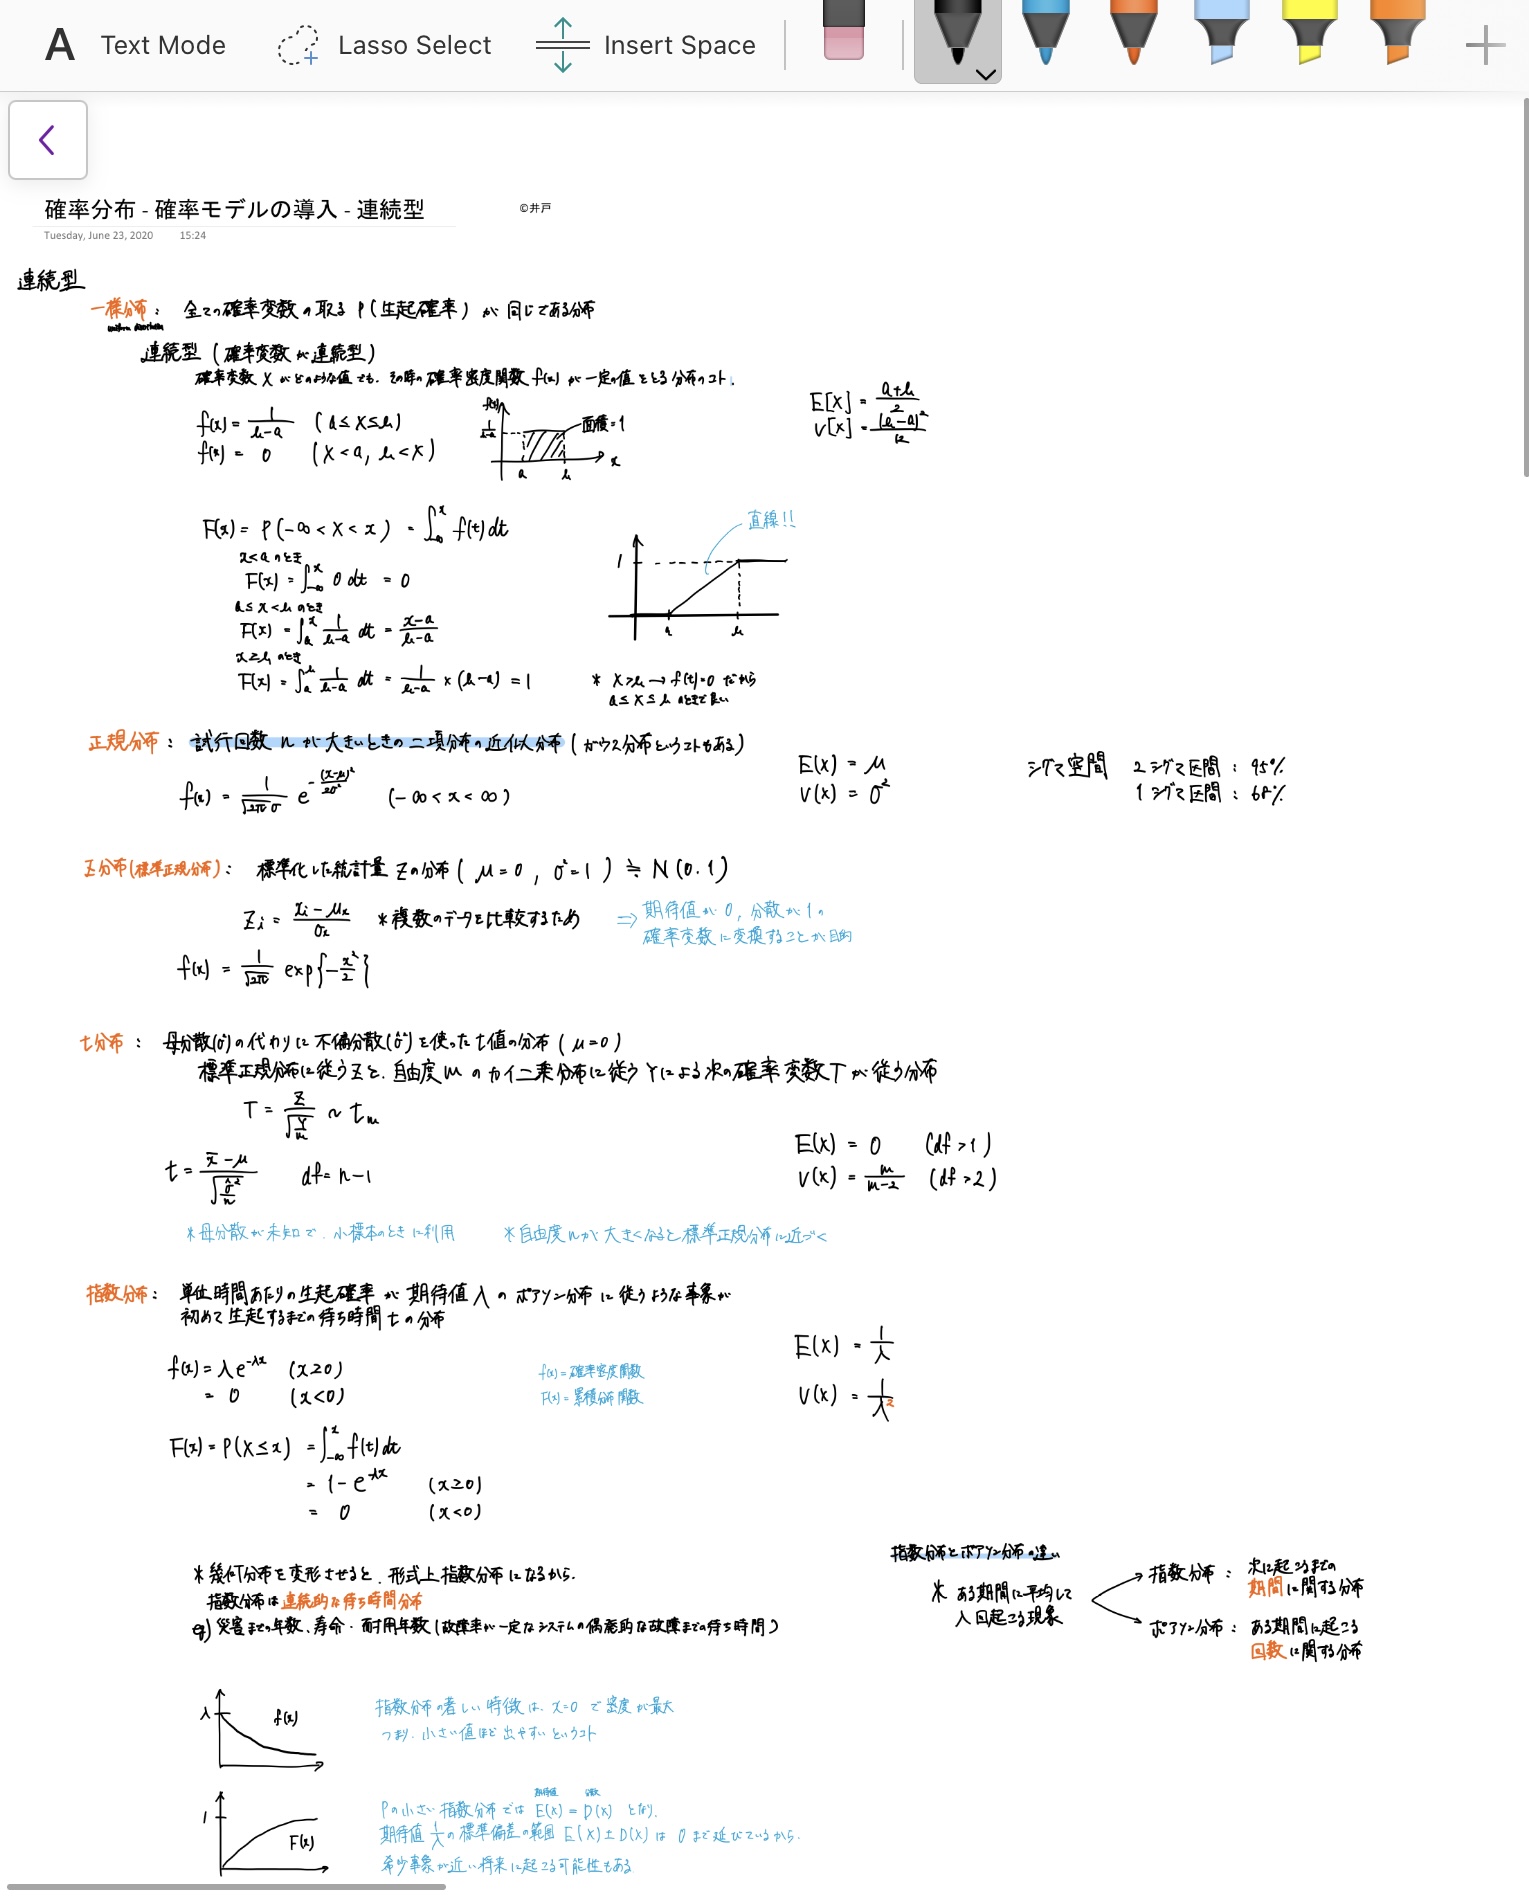 A Text Mode Lasso Select Insert Space
確率分布 - 確率モデルの導入 - 連続型
©井戸
Tuesday, June 23, 2020 15:24
連続型
一様分布： 全ての確率変数の取る P (生起確率) が 同じである分布
連続型 (確率変数が連続型)
確率変数 X がどのような値でも、その時の確率密度関数 f(x) が一定の値をとる分布のコト.
f(x) = 1/(b-a) (a ≤ X ≤ b)
f(x) = 0 (X < a, b < X)
f(x)
1/(b-a)
面積=1
a b x
E[X] = (a+b)/2
V[X] = (b-a)²/12
F(x) = P(-∞ < X < x) = ∫_{-∞}^{x} f(t) dt
x<a のとき
F(x) = ∫_{-∞}^{x} 0 dt = 0
a ≤ x < b のとき
F(x) = ∫_{a}^{x} 1/(b-a) dt = (x-a)/(b-a)
x ≥ b のとき
F(x) = ∫_{a}^{b} 1/(b-a) dt = 1/(b-a) × (b-a) = 1
直線!!
1
a b
* X>b → f(t)=0 だから
a ≤ X ≤ b のときで良い
正規分布： 試行回数 n が 大きいときの 二項分布の近似分布 (ガウス分布というコトもある)
f(x) = 1/(√2π σ) e^{-(x-μ)²/2σ²} (-∞ < x < ∞)
E(x) = μ
V(x) = σ²
シグマ空間 2シグマ区間 : 95%
1シグマ区間 : 68%
Z分布(標準正規分布)： 標準化した統計量 Z の分布 ( μ=0 , σ²=1 ) ≒ N (0.1)
Zi = (xi - μx)/σx *複数のデータを比較するため
⇒ 期待値が 0, 分散が 1 の
確率変数に変換することが目的
f(x) = 1/√2π exp{-x²/2}
t分布： 母分散(σ²)の代わりに 不偏分散(σ̂²)を使った t値の分布 ( μ=0 )
標準正規分布に従う Z と、自由度 m の カイ二乗分布に従う Y による次の確率変数 T が従う分布
T = Z/√(Y/m) ~ tm
t = (x̄ - μ)/√(σ̂²/n) df = n-1
E(x) = 0 (df > 1)
V(x) = m/(m-2) (df > 2)
*母分散が未知で、小標本のときに利用 *自由度 n が 大きくなると標準正規分布に近づく
指数分布： 単位時間あたりの生起確率が 期待値 λ の ポアソン分布 に従うような事象が
初めて生起するまでの待ち時間 t の分布
f(x) = λe^{-λx} (x≥0)
= 0 (x<0)
f(x) = 確率密度関数
F(x) = 累積分布関数
E(x) = 1/λ
V(x) = 1/λ²
F(x) = P(X ≤ x) = ∫_{-∞}^{x} f(t) dt
= 1 - e^{-λx} (x≥0)
= 0 (x<0)
*幾何分布を変形させると、形式上指数分布になるから.
指数分布は連続的な待ち時間分布
eg) 災害までの年数、寿命・耐用年数 (故障率が一定なシステムの偶発的な故障までの待ち時間)
指数分布とポアソン分布の違い
* ある期間に平均して
λ回起こる現象
指数分布： 次に起こるまでの
期間に関する分布
ポアソン分布： ある期間に起こる
回数に関する分布
λ f(x)
指数分布の著しい特徴は、x=0 で密度が最大
つまり、小さい値ほど出やすいというコト
1 F(x)
期待値 分散
Pの小さい指数分布では E(x) = D(x) となり、
期待値 1/λ の標準偏差の範囲 E(x) ± D(x) は 0 まで延びているから、
希少事象が近い将来に起こる可能性もある